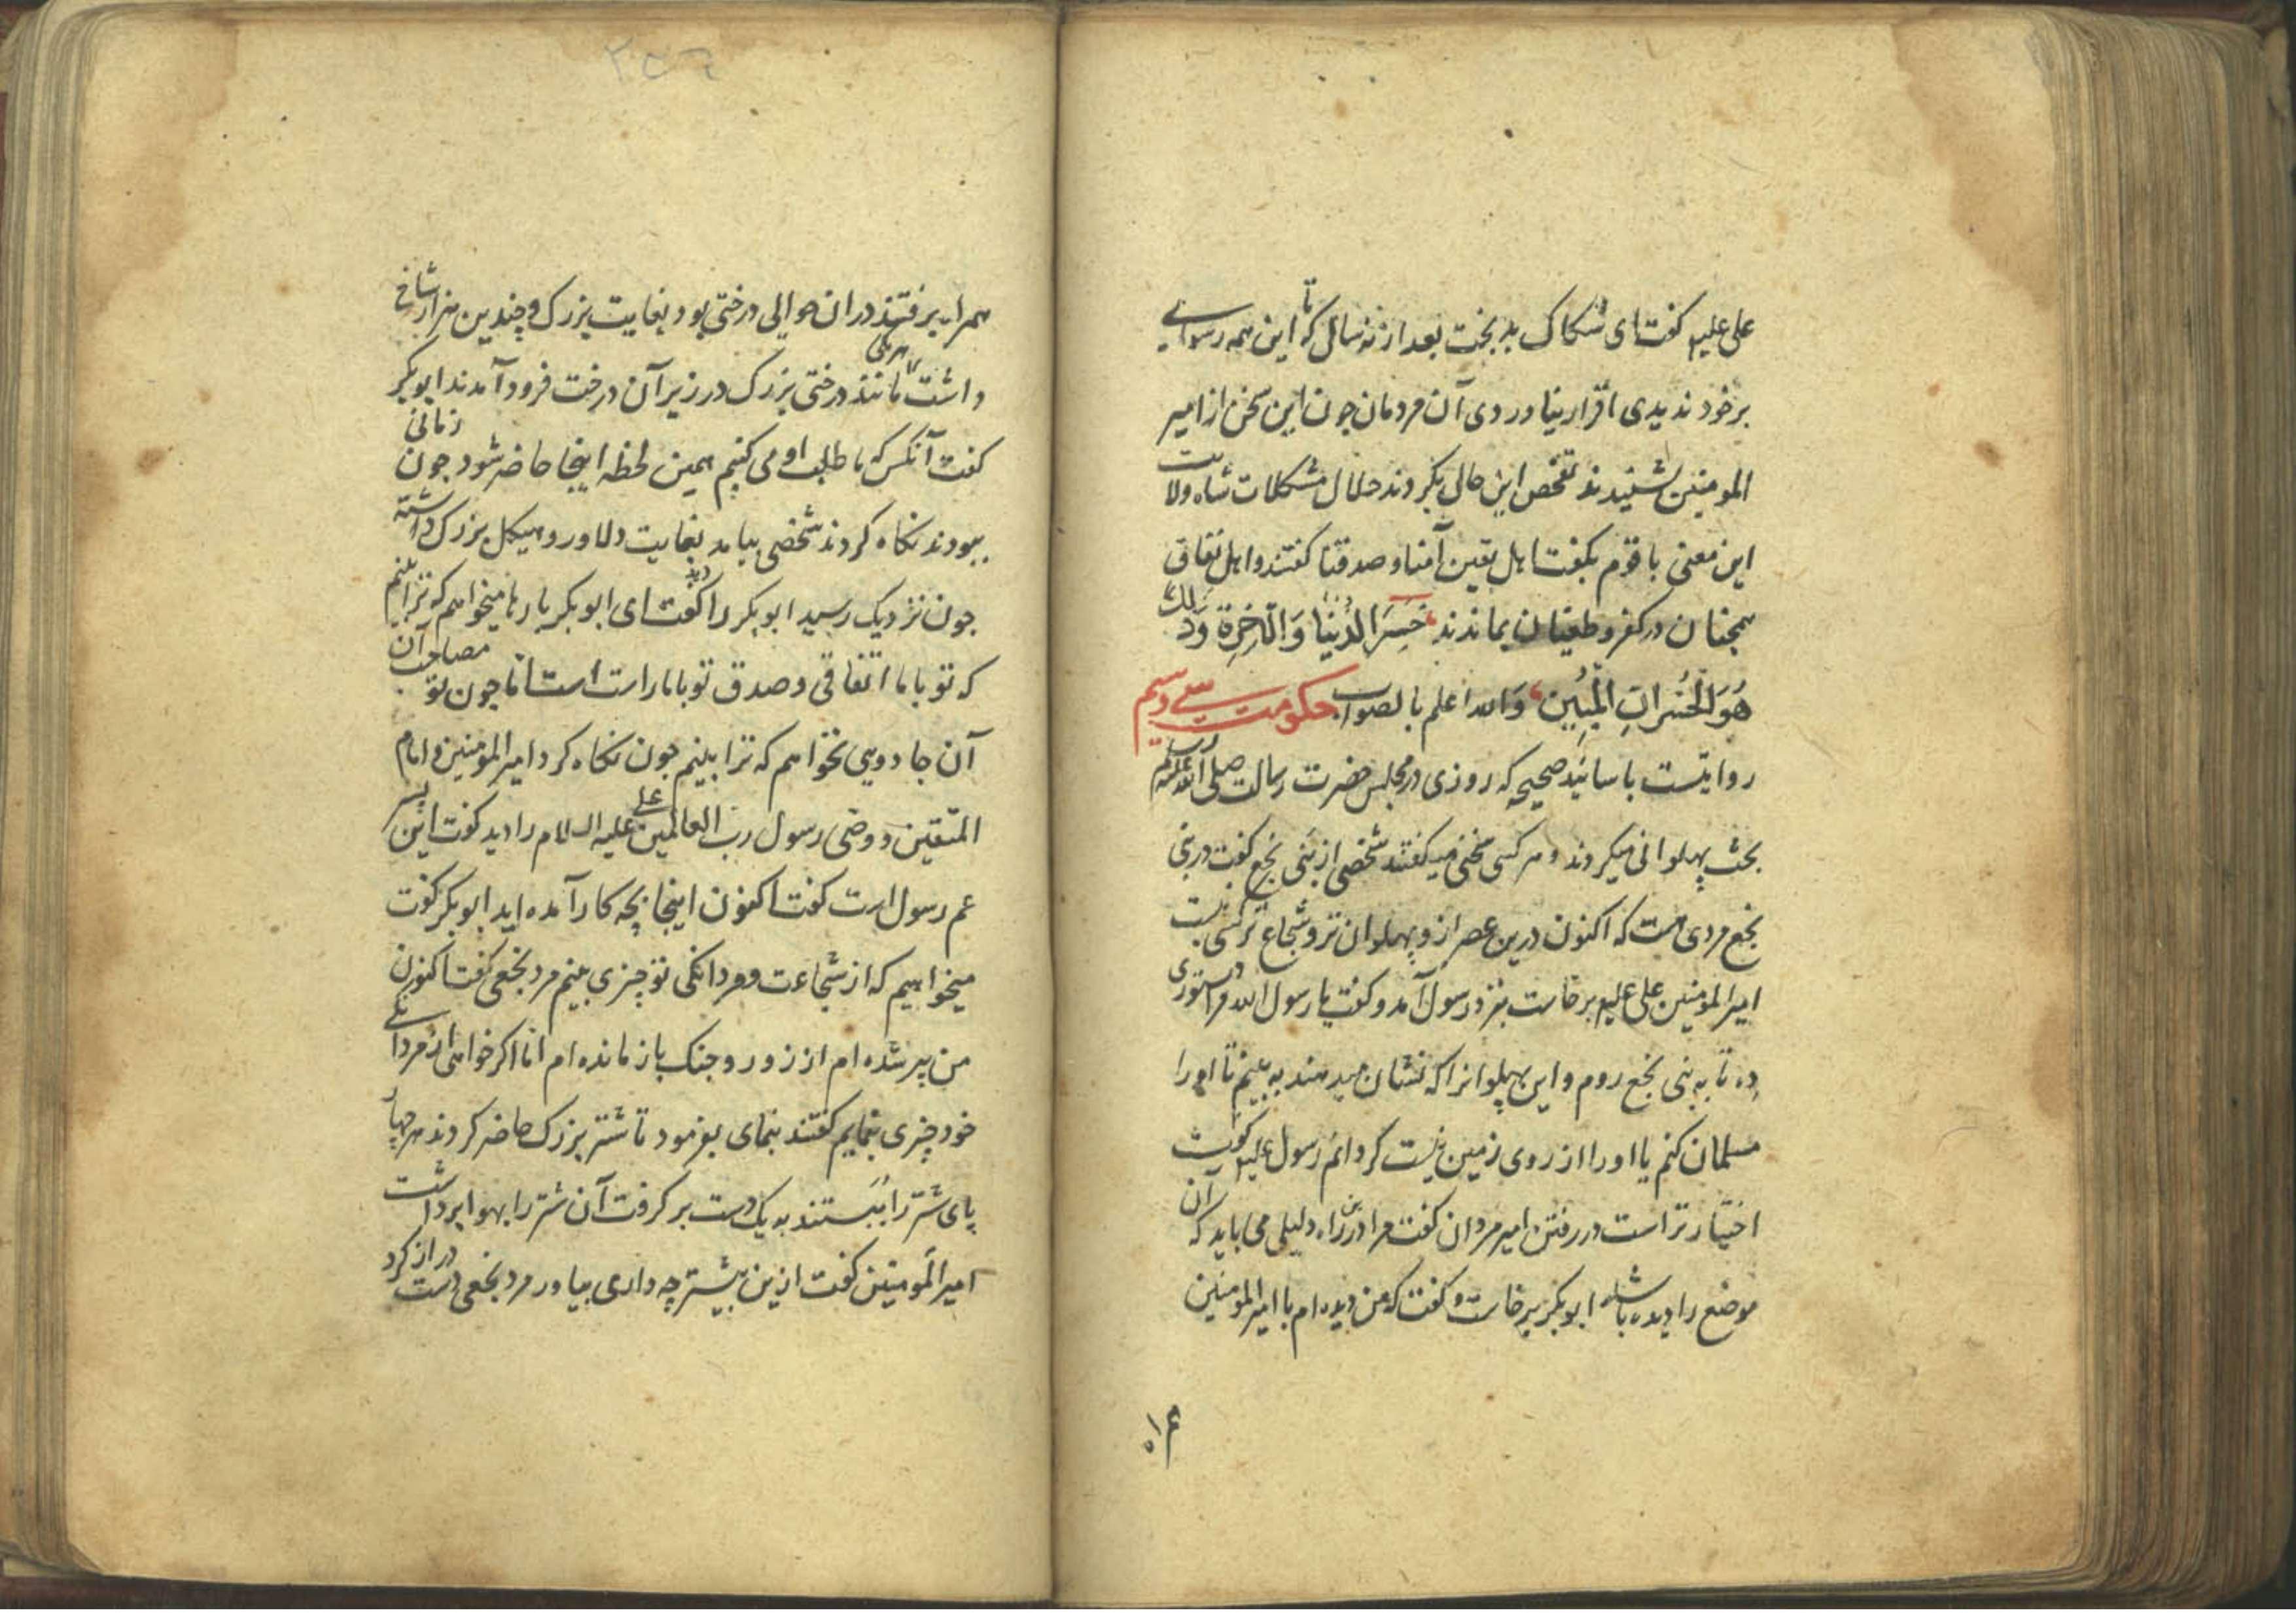 علی علیه گفت ای شکاک بدبخت بعد از نه سال که تا این همه رسوایی
بر خود ندیدی اقرار نیاوردی آن مردمان چون این سخن از امیر
المومنین بشنیدند تفحص این حال بکردند حلال مشکلات شاه ولایت
این معنی با قوم بگفت اهل یقین آمنا و صدقنا گفتند و اهل نفاق
همچنان در کفر و طغیان بماندند خَسِرَ الدُّنیَا وَالآخِرَة وَذَلِكَ
هُوَ الْخُسْرَانِ الْمُبِین وَالله اعلم بالصواب حکومت سی و سیم
روایتست باسانید صحیحه که روزی در مجلس حضرت رسالت صلی الله علیه
بحث پهلوانی میکردند و هر کسی سخنی میکفتند شخصی از بنی نخع گفت در بنی
نخع مردی هست که اکنون درین عصر ازو پهلوان تر و شجاع تر کسی نیست
امیرالمومنین علی علیه برخاست بنزد رسول آمد و گفت یا رسول الله مرا دستوری
ده تا به بنی نخع روم و این پهلوانرا که نشان میدهند به بینم تا او را
مسلمان کنم یا او را از روی زمین نیست کردانم رسول علیه گفت
اختیار تراست در رفتن امیر مردان گفت مرا درین راه دلیلی می باید که آن
موضع را دیده باشد ابوبکر برخاست و گفت که من دیده ام با امیر المومنین
همراه برفتند در ان حوالی درختی بود بغایت بزرک و چندین هزار شاخ
داشت هر یکی مانند درختی بزرک در زیر آن درخت فرود آمدند ابوبکر
گفت آنکس که ما طلب او می کنیم همین لحظه اینجا حاضر شود چون زمانی
ببودند نکاه کردند شخصی بیامد بغایت دلاور و هیکل بزرک داشته
چون نزدیک رسید ابوبکر را دید گفت ای ابوبکر بارها میخواهم که ترا بینم
که تو با ما اتفاقی و صدق تو با ما راست است اما چون تو مصاحب آن
آن جادویی نخواهم که ترا بینم چون نکاه کرد امیر المومنین و امام
المتقین و وصی رسول رب العالمین علی علیه السلام را دید گفت این پسر
عم رسول است گفت اکنون اینجا بچه کار آمده اید ابوبکر گفت
میخواهیم که از شجاعت و مردانکی تو چیزی بینم مرد نخعی گفت اکنون
من پیر شده ام از زور و جنک باز مانده ام اما اگر خواهی از مردانگی
خود چیزی بنمایم گفتند بنمای بفرمود تا شتر بزرک حاضر کردند هر چهار
پای شتر را ببستند به یک دست بر گرفت آن شتر را بهوا برداشت
امیرالمومنین گفت ازین بیشتر چه داری بیاور مرد نخعی دست دراز کرد